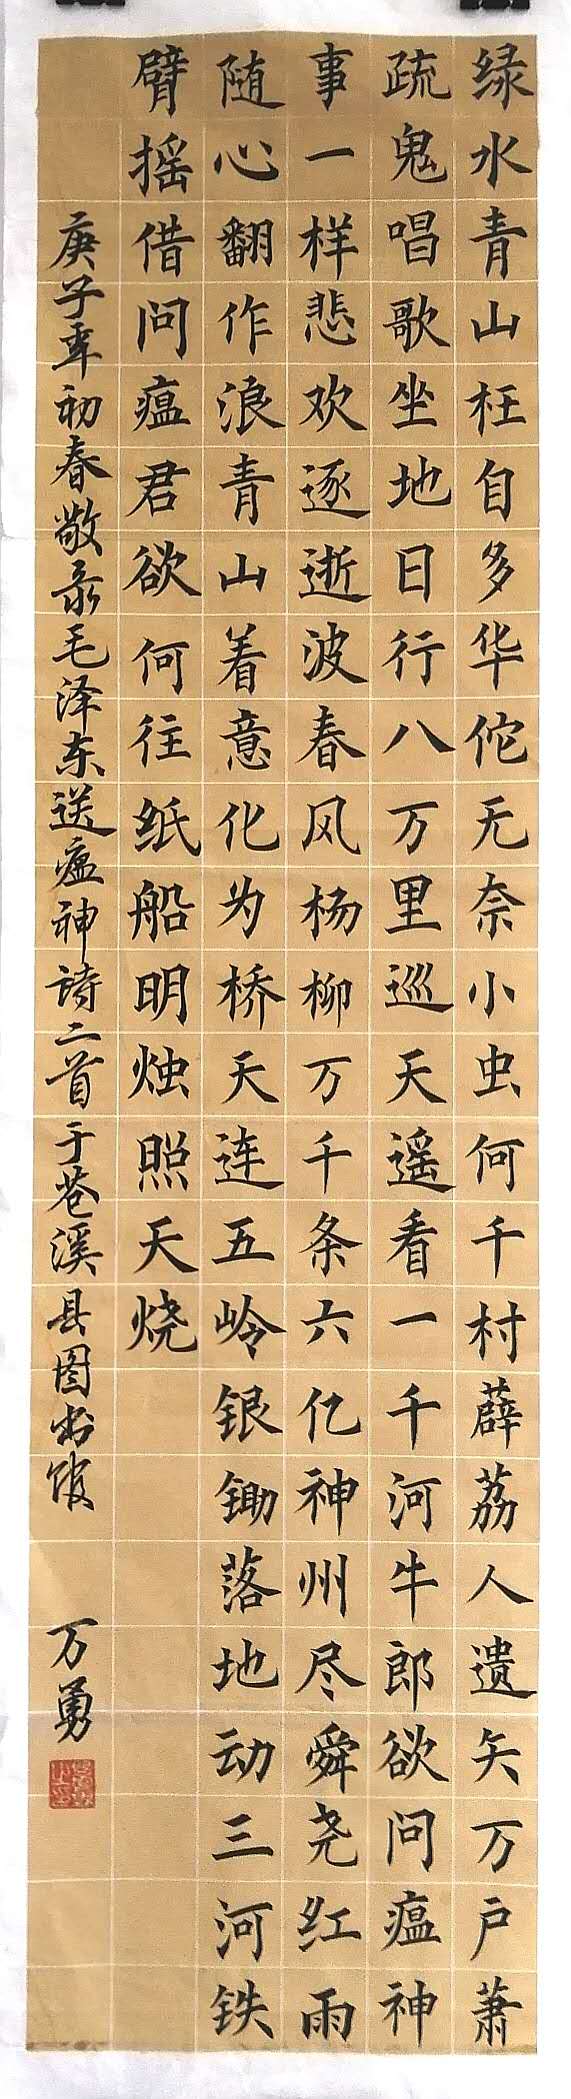 绿水青山枉自多华佗无奈小虫何千村薜荔人遗矢万户萧
疏鬼唱歌坐地日行八万里巡天遥看一千河牛郎欲问瘟神
事一样悲欢逐逝波春风杨柳万千条六亿神州尽舜尧红雨
随心翻作浪青山着意化为桥天连五岭银锄落地动三河铁
臂摇借问瘟君欲何往纸船明烛照天烧
庚子年初春敬录毛泽东送瘟神诗二首于苍溪县图书馆 万勇